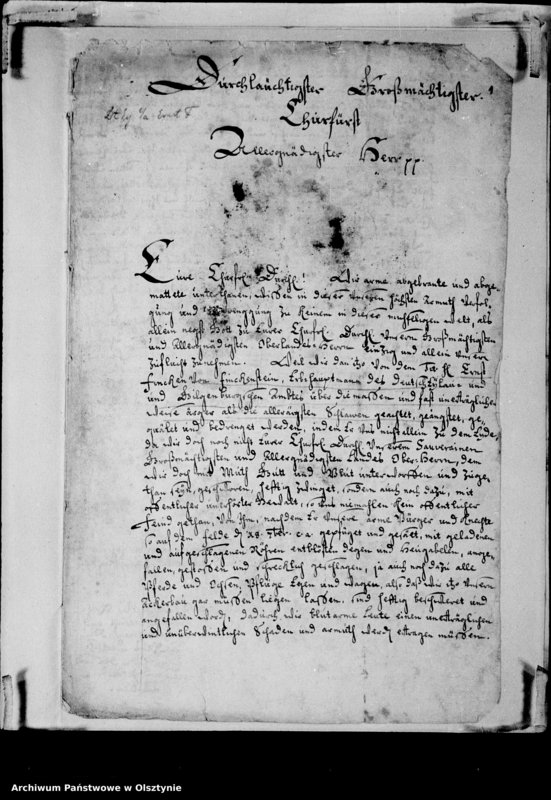 Durchlauchtigster Großmächtigster
Churfürst
Allergnädigster Herr pp
Eure Churfl. Durchl! Wir arme abgebrante und abge-
mattete unterthanen, wissen in dieser unseren höchsten Verfol-
gung und zu keinem in dieser müheseligen welt, als
allein negst Gott zu Eurer Churfl. Durchl. Unsern Großmächtigsten
und Allergnädigsten Oberlandes-Herrn einzig und allein unsere
Zuflucht zu nehmen. Weil wir dan itzo von dem Ernst
Fincken von Finckenstein, Erbhauptmann des Deutsch Eylau und
und Gilgenburgischen Ambtes über die massen und fast unerträglicher
weise ärger als die allerärgsten Sclaven geachtet, geängstet, ge-
quälet und bedrenget werden, indem Er uns nicht allein zu dem Ende,
da wir doch noch nicht Eurer Churfl. Durchl. Unserem Souverainen
Großmächtigsten und Allergnädigsten Landes Ober-Herrn, dem
wir doch mit Muth Gutt und Blut unterworffen und zuge-
than seyn, geschworen, hefftig zwinget, sondern auch noch dazu, mit
offentlicher unerhörter Gewalt, so uns niemahlen kein offentlicher
Feind gethan, von Ihm, nachdem Er unsere arme Bürger und Knechte
so auf dem felde d. 28. 7br. gepflüget und geseet, mit geladenen
und aufgeschlagenen Röhren entblösten degen und Heugabellen, ange-
fallen, gestossen und schrecklich geschlagen, ja auch noch dazu alle
Pferde und Ochsen, Pflüge Egen und Wagen, alß daß wir itzo unsern
Ackerbau gar müssen liegen lassen, sind hefftig beschweret und
angefallen word, dadurch wir blutarme Leute einen unerträglichen
und unüberwintlichen Schaden und armuth ertragen müssen.
Archiwum Państwowe w Olsztynie